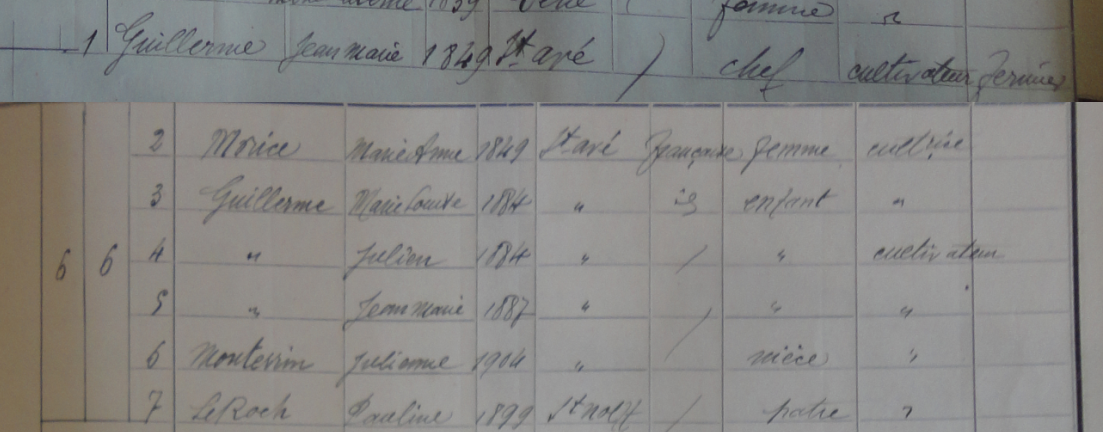 1839 femme "
1 Guillerme Jean Marie 1849 St avé / chef cultivateur fermier
2 Morice Marie Anne 1849 St avé française femme cultrice
3 Guillerme Marie Louise 1884 " id enfant "
4 " Julien 1884 " / " cultivateur
5 " Jean Marie 1887 " / " "
6 6 6 Monterrin Julienne 1904 " / nièce "
7 Le Roch Pauline 1899 St Nolff / patre "